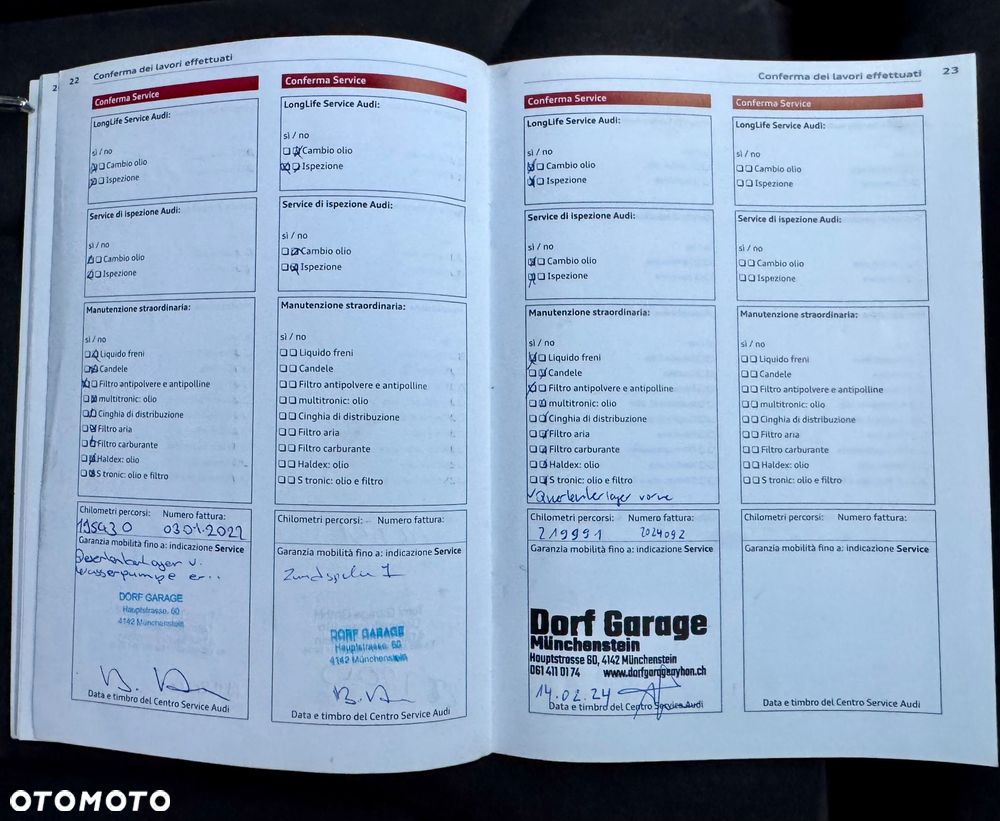 22 Conferma dei lavori effettuati
Conferma Service
LongLife Service Audi:
sì / no
Cambio olio
Ispezione
Service di ispezione Audi:
sì / no
Cambio olio
Ispezione
Manutenzione straordinaria:
sì / no
Liquido freni
Candele
Filtro antipolvere e antipolline
multitronic: olio
Cinghia di distribuzione
Filtro aria
Filtro carburante
Haldex: olio
S tronic: olio e filtro
Chilometri percorsi: Numero fattura:
Garanzia mobilità fino a: indicazione Service
Wasserpumpe er..
DORF GARAGE
Hauptstrasse. 60
4142 Münchenstein
Data e timbro del Centro Service Audi
Conferma Service
LongLife Service Audi:
sì / no
Cambio olio
Ispezione
Service di ispezione Audi:
sì / no
Cambio olio
Ispezione
Manutenzione straordinaria:
sì / no
Liquido freni
Candele
Filtro antipolvere e antipolline
multitronic: olio
Cinghia di distribuzione
Filtro aria
Filtro carburante
Haldex: olio
S tronic: olio e filtro
Chilometri percorsi: Numero fattura:
Garanzia mobilità fino a: indicazione Service
DORF GARAGE
Hauptstrasse 60
4142 Münchenstein
Data e timbro del Centro Service Audi
Conferma dei lavori effettuati 23
Conferma Service
LongLife Service Audi:
sì / no
Cambio olio
Ispezione
Service di ispezione Audi:
sì / no
Cambio olio
Ispezione
Manutenzione straordinaria:
sì / no
Liquido freni
Candele
Filtro antipolvere e antipolline
multitronic: olio
Cinghia di distribuzione
Filtro aria
Filtro carburante
Haldex: olio
S tronic: olio e filtro
Querlenkerlager vorne
Chilometri percorsi: Numero fattura:
219991 2024092
Garanzia mobilità fino a: indicazione Service
Dorf Garage
Münchenstein
Hauptstrasse 60, 4142 Münchenstein
061 411 01 74
14.02.24
Data e timbro del Centro Service Audi
Conferma Service
LongLife Service Audi:
sì / no
Cambio olio
Ispezione
Service di ispezione Audi:
sì / no
Cambio olio
Ispezione
Manutenzione straordinaria:
sì / no
Liquido freni
Candele
Filtro antipolvere e antipolline
multitronic: olio
Cinghia di distribuzione
Filtro aria
Filtro carburante
Haldex: olio
S tronic: olio e filtro
Chilometri percorsi: Numero fattura:
Garanzia mobilità fino a: indicazione Service
Data e timbro del Centro Service Audi
OTOMOTO